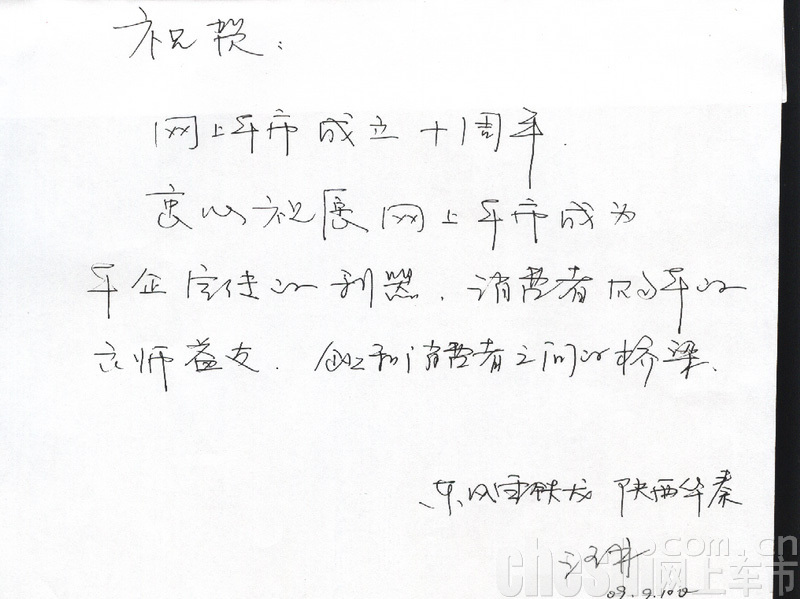 祝贺:
网上车市成立十周年.
衷心祝愿网上车市成为
车企宣传的利器、消费者购车的
良师益友. 企业和消费者之间的桥梁.
东风雪铁龙 陕西华秦
09.9.10
cheshi.com.cn
网上车市